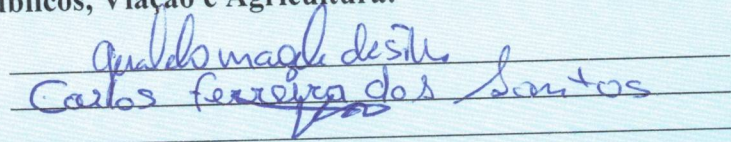 úblicos, Viação e Agricultura.
de Silva
Carlos ferreira dos Santos